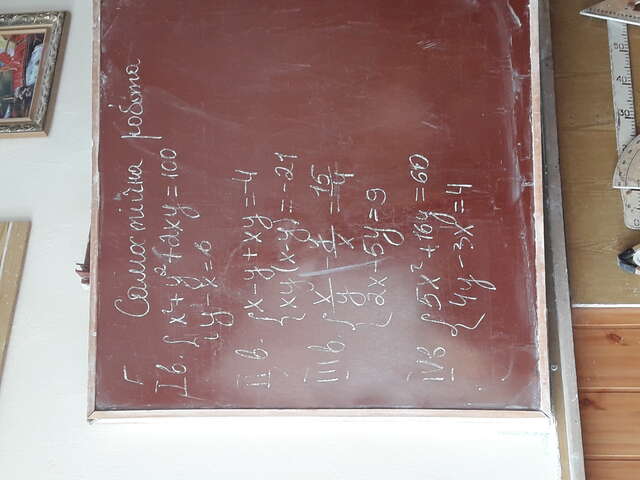 Г Самостійна робота
Ів. { x² + y² + 2xy = 100
y - x = 6
ІІ в. { x - y + xy = -4
xy(x-y) = -21
ІІІ в. { x/y - y/x = 15/4
2x - 5y = 9
IVв { 5x² + 16y = 60
4y - 3x = 4